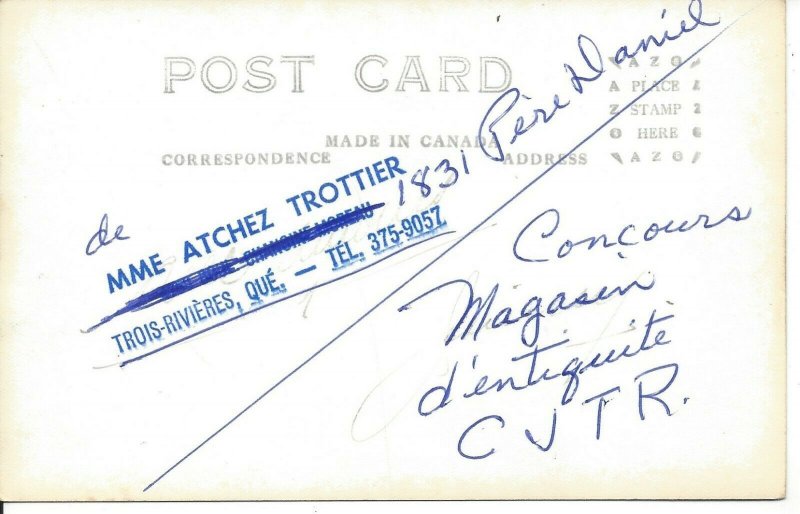 POST CARD
AZO
A PLACE Z
Z STAMP Z
O HERE O
AZO
MADE IN CANADA
CORRESPONDENCE
ADDRESS
de
MME ATCHEZ TROTTIER
1831 Père Daniel
CHANOINE MOREAU
TROIS-RIVIÈRES, QUÉ. — TÉL. 375-9057
Concours
Magasin
d'entiquité
CJTR.